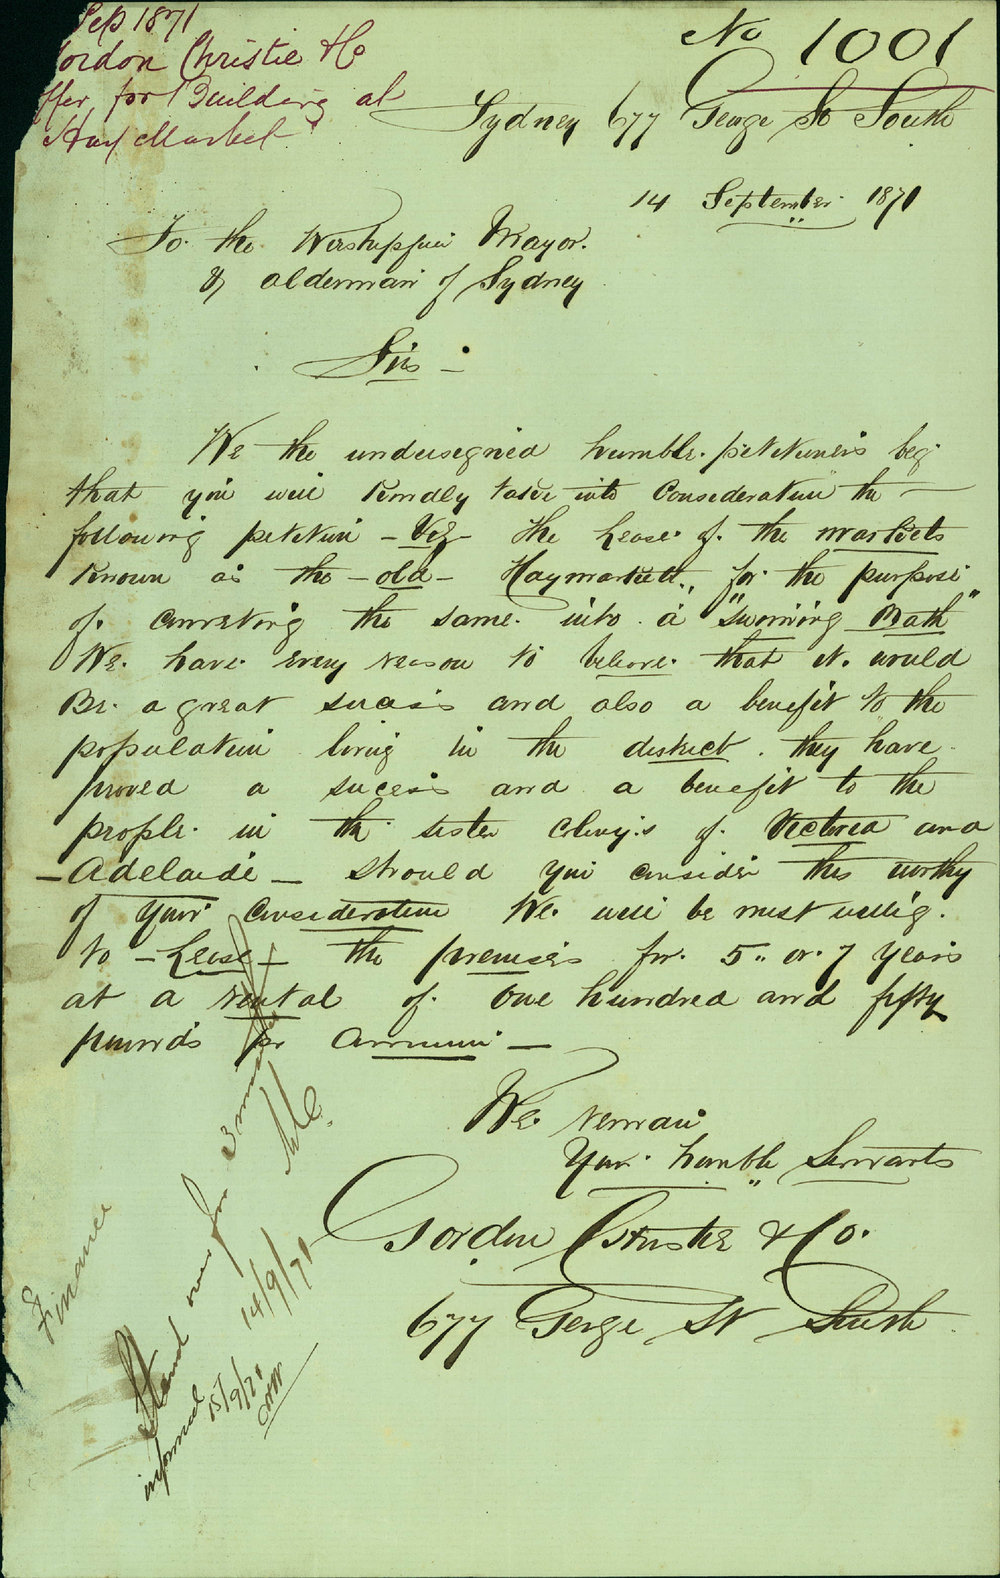 Sep 1871
ordon Christie & Co
ffer for Building at
Hay Market
No 1001
Sydney 677 George St South
14 September 1871
To the Worshipfull Mayor.
& alderman of Sydney
Sirs -
We the undersegned humble petetioners beg
that you will kindly take into Consederation the
following petetion - Viz - The Lease of the markets
known as the - old - Haymarkett, for the purpose
of converting the same into a "Swiming Bath"
We have every reason to beleive that it would
Be a great sucess and also a benefit to the
population living in the district. they have
proved a sucess and a benefit to the
people in the sister Colony's of Victoria and
- Adelaide - Should you consider this worthy
of your Consideration We will be most willig
to - Lease - the premises for 5 or 7 years
at a rental of One hundred and fifty
pounds per Annum -
We remain
Your humble Servants
Gordon Christie & Co.
677 George St South
Finance
Stand over for 3 months
14/9/71
informed 15/9/71